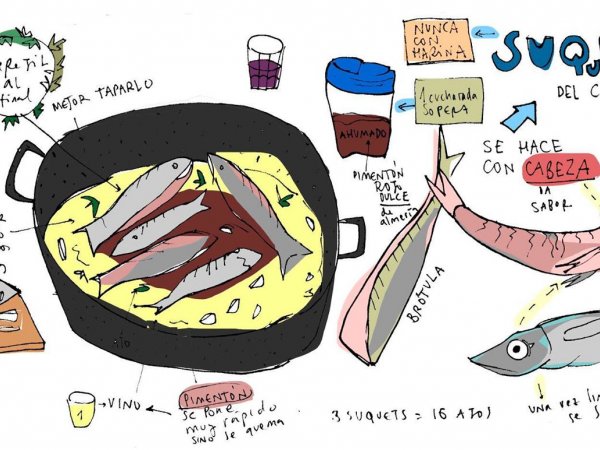 PEREJIL
al
final
MEJOR TAPARLO
NUNCA
CON
HARINA
SUQU
DEL C
1 cucharada
SOPERA
AHUMADO
PIMENTÓN
ROJO
DULCE
de
almería
SE HACE
CON CABEZA
DA
SABOR
BRÓTULA
1
VINO
PIMENTÓN
SE PONE
MUY RÁPIDO
SINO SE QUEMA
3 SUQUETS = 16 AJOS
UNA VEZ
SE